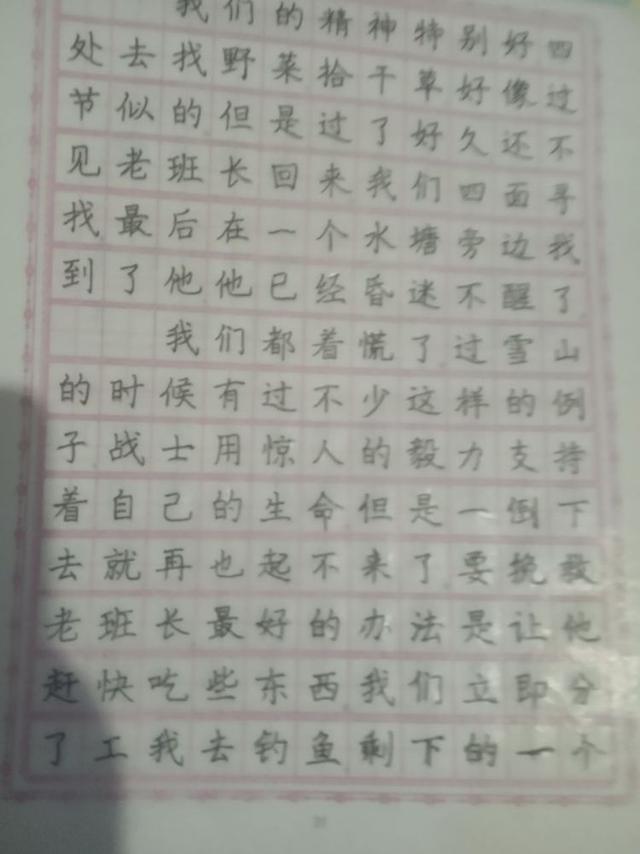 我们的精神特别好四
处去找野菜拾干草好像过
节似的但是过了好久还不
见老班长回来我们四面寻
找最后在一个水塘旁边找
到了他他已经昏迷不醒了
我们都着慌了过雪山
的时候有过不少这样的例
子战士用惊人的毅力支持
着自己的生命但是一倒下
去就再也起不来了要挽救
老班长最好的办法是让他
赶快吃些东西我们立即分
了工我去钓鱼剩下的一个